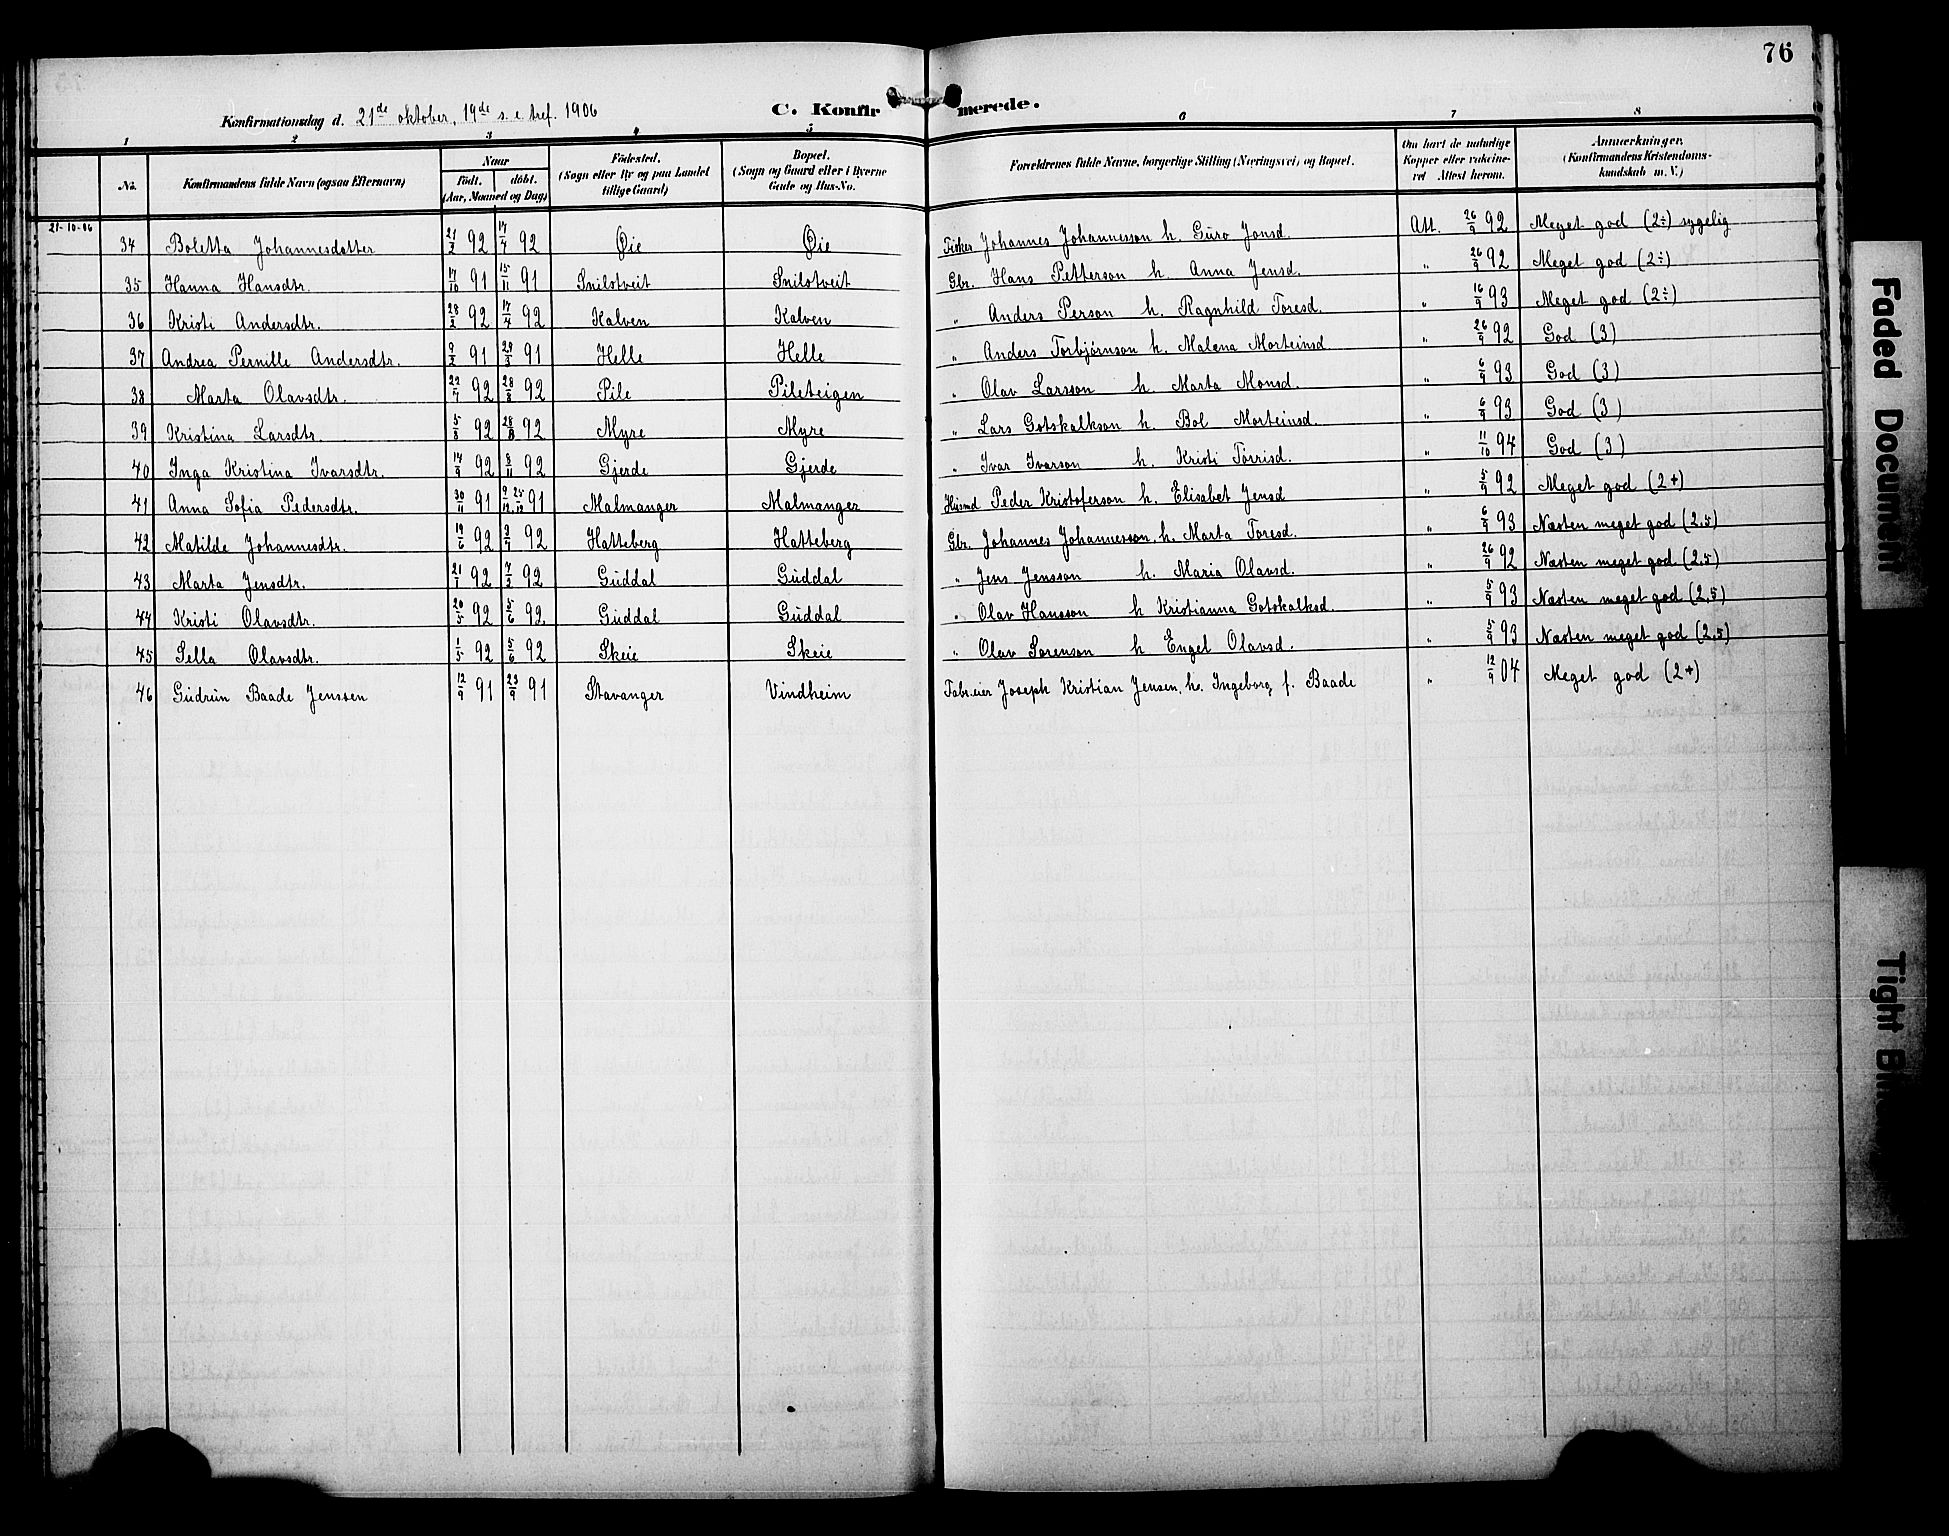 76
Konfirmationsdag d. 21de oktober, 19de s. e. tref. 1906 C. Konfirmerede.
1 2 3 4 5 6 7 8
No. Konfirmandens fulde Navn (ogsaa Efternavn) Naar født. døbt. (Aar, Maaned og Dag) Fødested. (Sogn eller By og paa Landet tillige Gaard) Bopæl. (Sogn og Gaard eller i Byerne Gade og Hus-No. Forældrenes fulde Navne, borgerlige Stilling (Næringsvei) og Bopæl. Om havt de naturlige Kopper eller vakcineret Attest herom. Anmærkninger. (Konfirmandens Kristendomskundskab m. V.)
21-10-06
34 Boletta Johannesdatter 21/2 92 17/4 92 Øie Øie Fisker Johannes Johannesson h. Guro Jonsd. Att. 26/9 92 Meget god (2÷) sygelig
35 Hanna Hansdtr. 17/10 91 15/11 91 Snilstveit Snilstveit Gbr. Hans Petterson h. Anna Jensd. " 26/9 92 Meget god (2÷)
36 Kristi Andersdtr. 28/2 92 17/4 92 Kalven Kalven " Anders Person h. Ragnhild Toresd. " 16/9 93 Meget god (2÷)
37 Andrea Pernille Andersdtr. 9/2 91 29/3 91 Helle Helle " Anders Torbjørnson h. Malena Morteinsd. " 26/9 92 God (3)
38 Marta Olavsdtr. 22/7 92 28/8 92 Pile Pileteigen " Olav Larsson h. Marta Monsd. " 6/9 93 God (3)
39 Kristina Larsdtr. 5/8 92 28/8 92 Myre Myre " Lars Gotskalkson h. Bol Morteinsd. " 6/9 93 God (3)
40 Inga Kristina Ivarsdtr. 17/9 92 8/11 92 Gjerde Gjerde " Ivar Ivarson h. Kristi Torrisd. " 11/10 94 God (3)
41 Anna Sofia Pedersdtr. 30/11 91 9/12 25/12 91 Malmanger Malmanger Husmd Peder Kristoferson h. Elisabet Jensd " 5/9 92 Meget god (2+)
42 Matilde Johannesdtr. 19/6 92 92 Hatteberg Hatteberg Gbr. Johannes Johannesson h. Marta Toresd. " 6/9 93 Næsten meget god (2.5)
43 Marta Jensdtr. 21/1 92 7/2 92 Guddal Guddal " Jens Jensson h. Maria Olavsd. " 26/9 92 Næsten meget god (2,5)
44 Kristi Olavsdtr. 20/5 92 5/6 92 Guddal Guddal " Olav Hansson h Kristianna Gotskalksd. " 5/9 93 Næsten meget god (2,5)
45 Sella Olavsdtr. 1/5 92 5/6 92 Skeie Skeie " Olav Sørenson h Engel Olavsd. " 5/9 93 Næsten meget god (2,5)
46 Gudrun Baade Jenssen 12/9 91 23/9 91 Stavanger Vindheim Fabr.eier Joseph Kristian Jensen, h. Ingeborg f. Baade " 12/9 04 Meget god (2+)
Faded Document
Tight